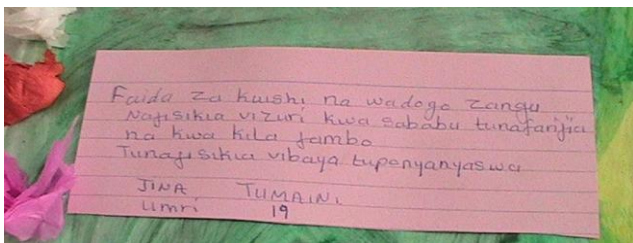 Faida za kuishi na wadogo zangu
Najisikia vizuri kwa sababu tunafarijia
na kwa kila jambo
Tunajisikia vibaya tupenyanyaswa
JINA TUMAINI
Umri 19